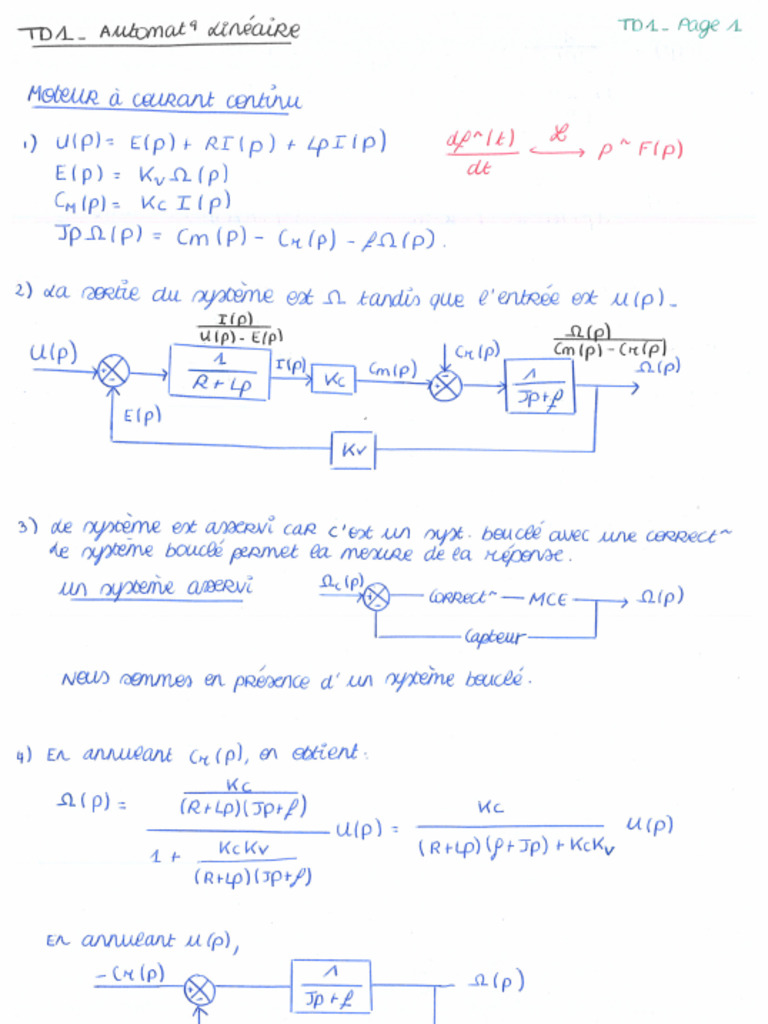 TD1 - Automat^q Linéaire
TD1 - Page 1
Moteur à courant continu
1) U(p) = E(p) + RI(p) + LpI(p)
df^n(t)/dt ⟷ ℒ p^n F(p)
E(p) = Kv Ω(p)
CM(p) = Kc I(p)
JpΩ(p) = Cm(p) - Cr(p) - fΩ(p).
2) La sortie du système est Ω tandis que l'entrée est U(p) -
I(p)/(U(p) - E(p))
Ω(p)/(Cm(p) - Cr(p))
U(p) + - 1/(R + Lp) I(p) Kc Cm(p) Cr(p) + - 1/(Jp + f) Ω(p)
E(p)
Kv
3) Le système est asservi car c'est un syst. bouclé avec une correct^n
Le système bouclé permet la mesure de la réponse.
un système asservi
Ωc(p) + - correct^n - MCE Ω(p)
Capteur
Nous sommes en présence d'un système bouclé.
4) En annulant Cr(p), on obtient :
Ω(p) = (Kc/((R+Lp)(Jp+f)))/(1 + KcKv/((R+Lp)(Jp+f))) U(p) = Kc/((R+Lp)(f+Jp) + KcKv) U(p)
En annulant U(p),
-Cr(p) + - 1/(Jp + f) Ω(p)